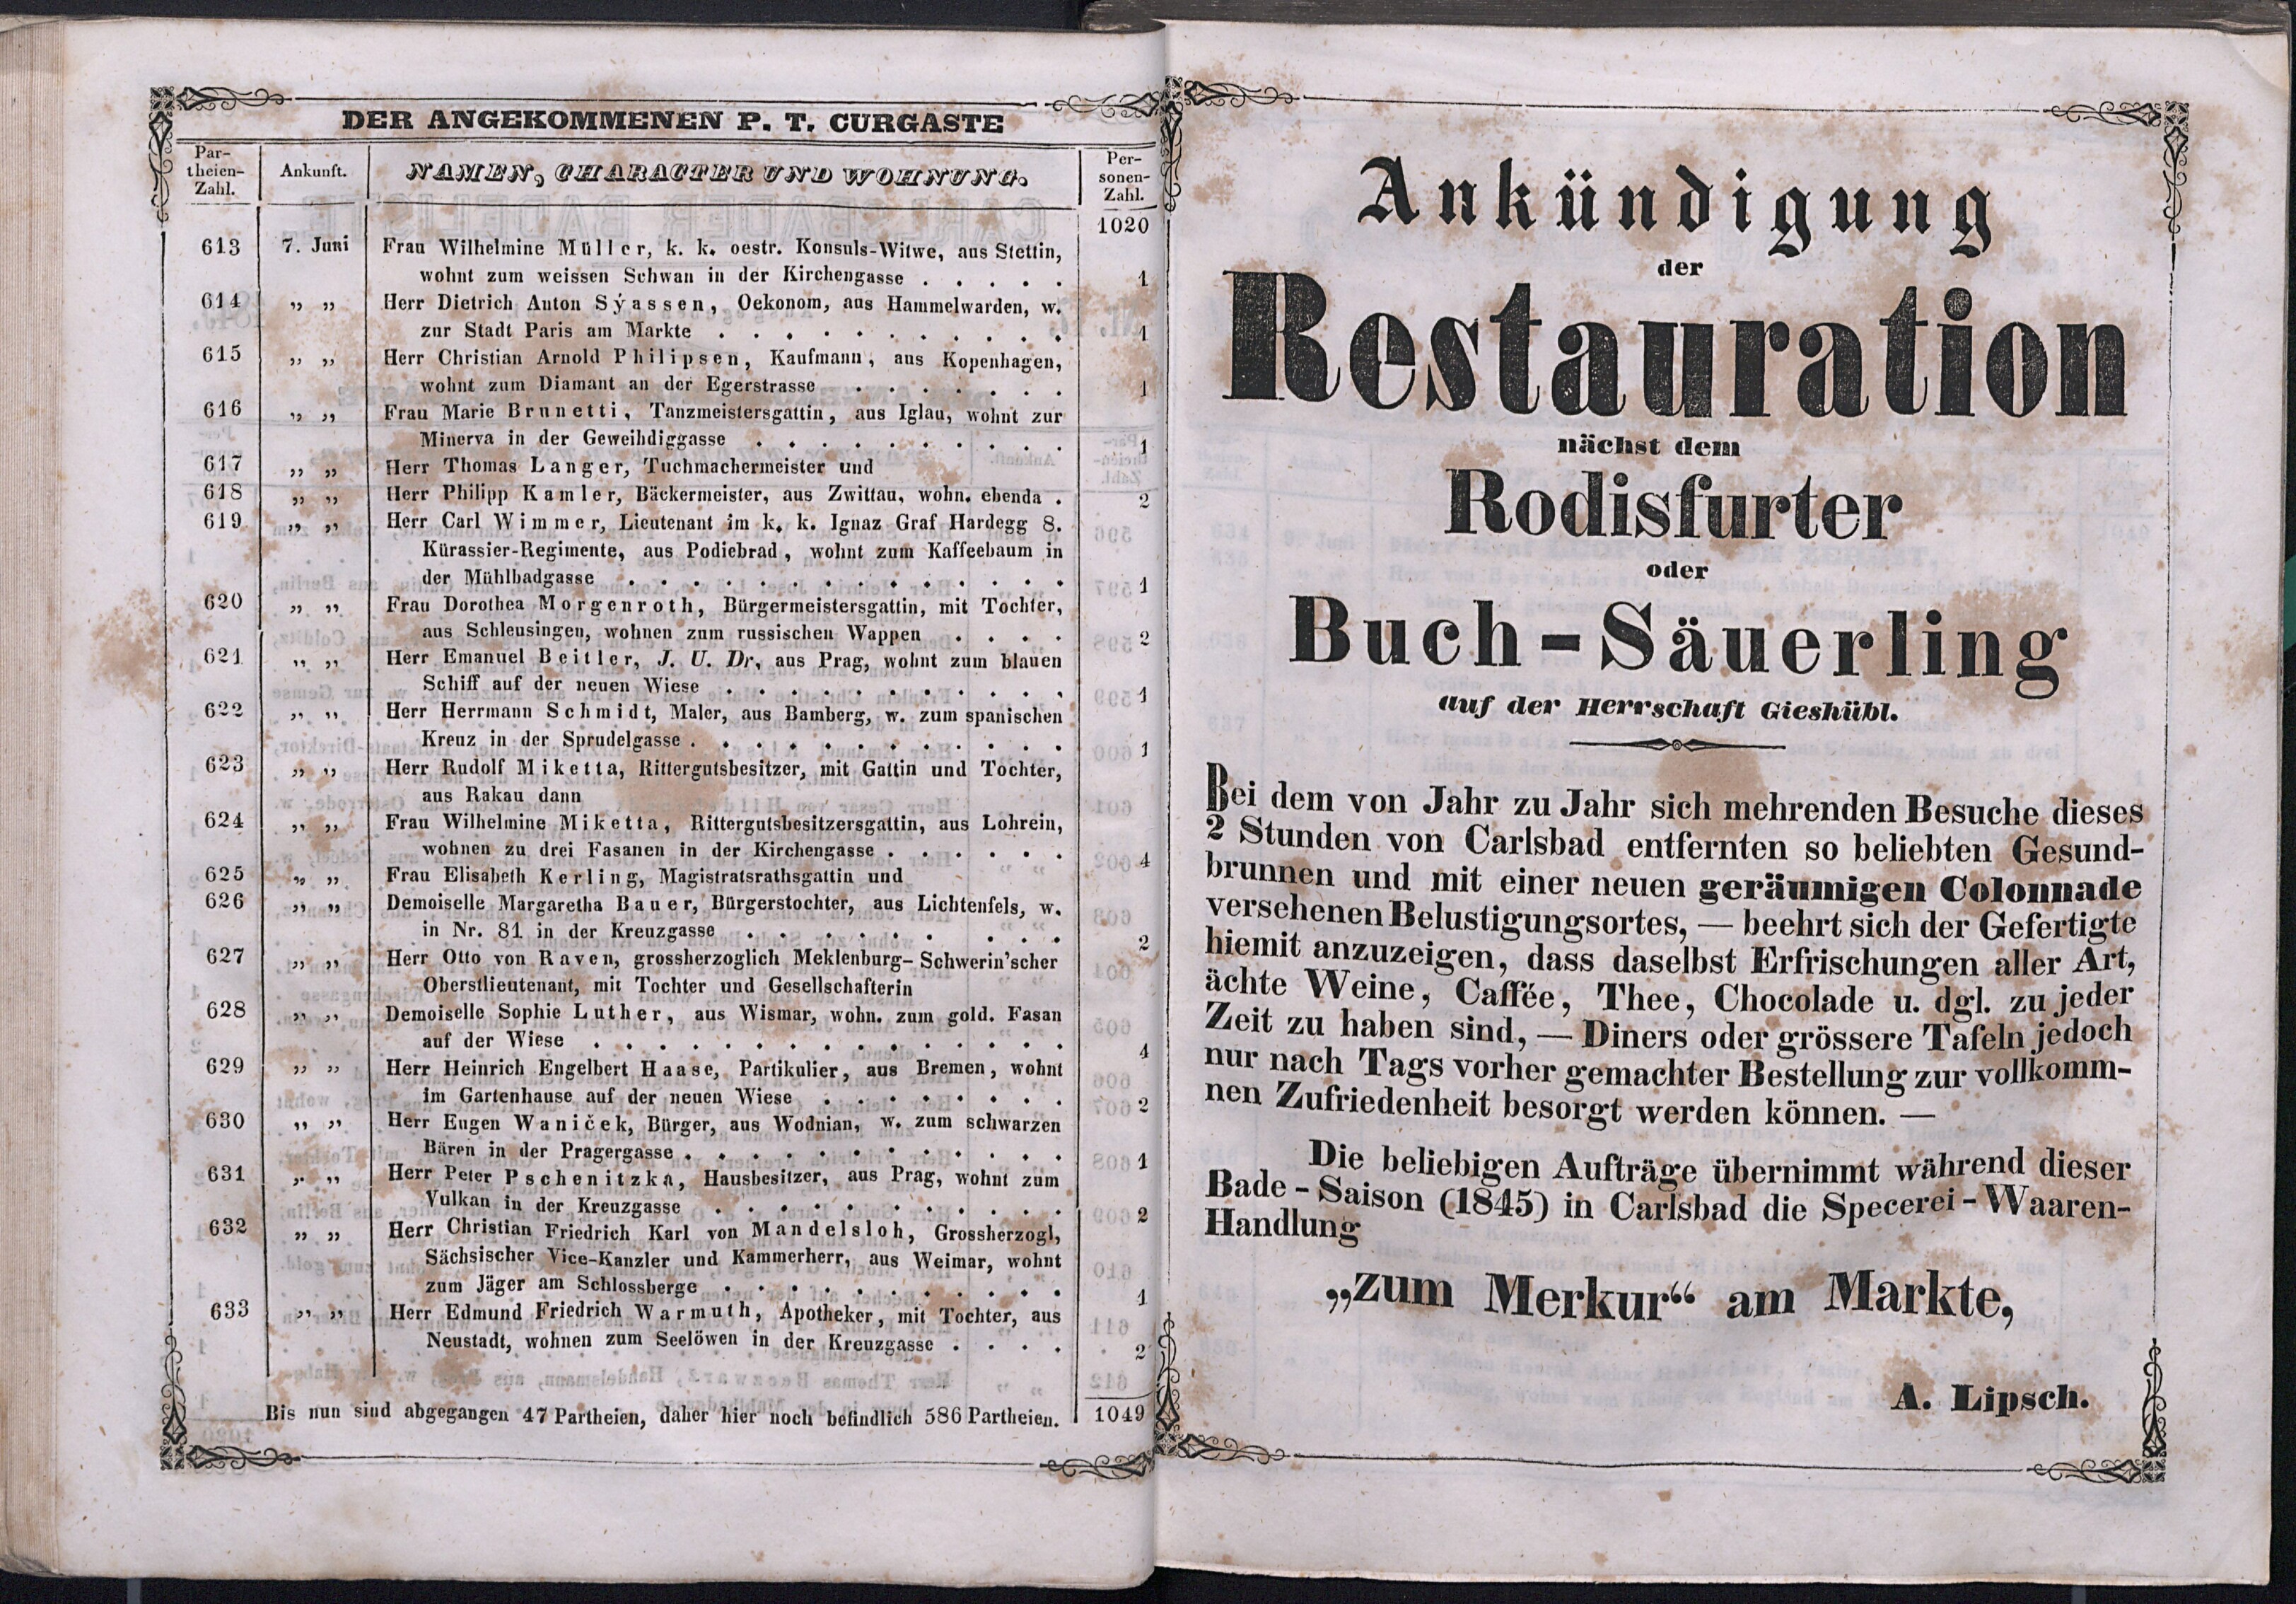 DER ANGEKOMMENEN P. T. CURGASTE
Par-
theien-
Zahl.
Ankunft.
NAMEN, CHARACTER UND WOHNUNG.
Per-
sonen-
Zahl.
1020
613 7. Juni Frau Wilhelmine Müller, k. k. oestr. Konsuls-Witwe, aus Stettin,
wohnt zum weissen Schwan in der Kirchengasse . . . . . 1
614 „ „ Herr Dietrich Anton Sýassen, Oekonom, aus Hammelwarden, w.
zur Stadt Paris am Markte . . . . . . . . . . . 1
615 „ „ Herr Christian Arnold Philipsen, Kaufmann, aus Kopenhagen,
wohnt zum Diamant an der Egerstrasse . . . . . . . 1
616 „ „ Frau Marie Brunetti, Tanzmeistersgattin, aus Iglau, wohnt zur
Minerva in der Geweihdiggasse . . . . . . . . . . 1
617 „ „ Herr Thomas Langer, Tuchmachermeister und
618 „ „ Herr Philipp Kamler, Bäckermeister, aus Zwittau, wohn. ebenda . 2
619 „ „ Herr Carl Wimmer, Lieutenant im k. k. Ignaz Graf Hardegg 8.
Kürassier-Regimente, aus Podiebrad, wohnt zum Kaffeebaum in
der Mühlbadgasse . . . . . . . . . . . . . . 1
620 „ „ Frau Dorothea Morgenroth, Bürgermeistersgattin, mit Tochter,
aus Schleusingen, wohnen zum russischen Wappen . . . . 2
621 „ „ Herr Emanuel Beitler, J. U. Dr, aus Prag, wohnt zum blauen
Schiff auf der neuen Wiese . . . . . . . . . . . 1
622 „ „ Herr Herrmann Schmidt, Maler, aus Bamberg, w. zum spanischen
Kreuz in der Sprudelgasse . . . . . . . . . . . . 1
623 „ „ Herr Rudolf Miketta, Rittergutsbesitzer, mit Gattin und Tochter,
aus Rakau dann
624 „ „ Frau Wilhelmine Miketta, Rittergutsbesitzersgattin, aus Lohrein,
wohnen zu drei Fasanen in der Kirchengasse . . . . . . 4
625 „ „ Frau Elisabeth Kerling, Magistratsrathsgattin und
626 „ „ Demoiselle Margaretha Bauer, Bürgerstochter, aus Lichtenfels, w.
in Nr. 81 in der Kreuzgasse . . . . . . . . . . 2
627 „ „ Herr Otto von Raven, grossherzoglich Meklenburg-Schwerin'scher
Oberstlieutenant, mit Tochter und Gesellschafterin
628 „ „ Demoiselle Sophie Luther, aus Wismar, wohn. zum gold. Fasan
auf der Wiese . . . . . . . . . . . . . . . 4
629 „ „ Herr Heinrich Engelbert Haase, Partikulier, aus Bremen, wohnt
im Gartenhause auf der neuen Wiese . . . . . . . . 2
630 „ „ Herr Eugen Waniček, Bürger, aus Wodnian, w. zum schwarzen
Bären in der Pragergasse . . . . . . . . . . . . 1
631 „ „ Herr Peter Pschenitzka, Hausbesitzer, aus Prag, wohnt zum
Vulkan in der Kreuzgasse . . . . . . . . . . . 2
632 „ „ Herr Christian Friedrich Karl von Mandelsloh, Grossherzogl,
Sächsischer Vice-Kanzler und Kammerherr, aus Weimar, wohnt
zum Jäger am Schlossberge . . . . . . . . . . . 1
633 „ „ Herr Edmund Friedrich Warmuth, Apotheker, mit Tochter, aus
Neustadt, wohnen zum Seelöwen in der Kreuzgasse . . . . 2
Bis nun sind abgegangen 47 Partheien, daher hier noch befindlich 586 Partheien. 1049
Ankündigung
der
Restauration
nächst dem
Rodisfurter
oder
Buch-Säuerling
auf der Herrschaft Gieshübl.
Bei dem von Jahr zu Jahr sich mehrenden Besuche dieses
2 Stunden von Carlsbad entfernten so beliebten Gesund-
brunnen und mit einer neuen geräumigen Colonnade
versehenen Belustigungsortes, — beehrt sich der Gefertigte
hiemit anzuzeigen, dass daselbst Erfrischungen aller Art,
ächte Weine, Caffée, Thee, Chocolade u. dgl. zu jeder
Zeit zu haben sind, — Diners oder grössere Tafeln jedoch
nur nach Tags vorher gemachter Bestellung zur vollkomm-
nen Zufriedenheit besorgt werden können. —
Die beliebigen Aufträge übernimmt während dieser
Bade-Saison (1845) in Carlsbad die Specerei-Waaren-
Handlung
„zum Merkur“ am Markte,
A. Lipsch.